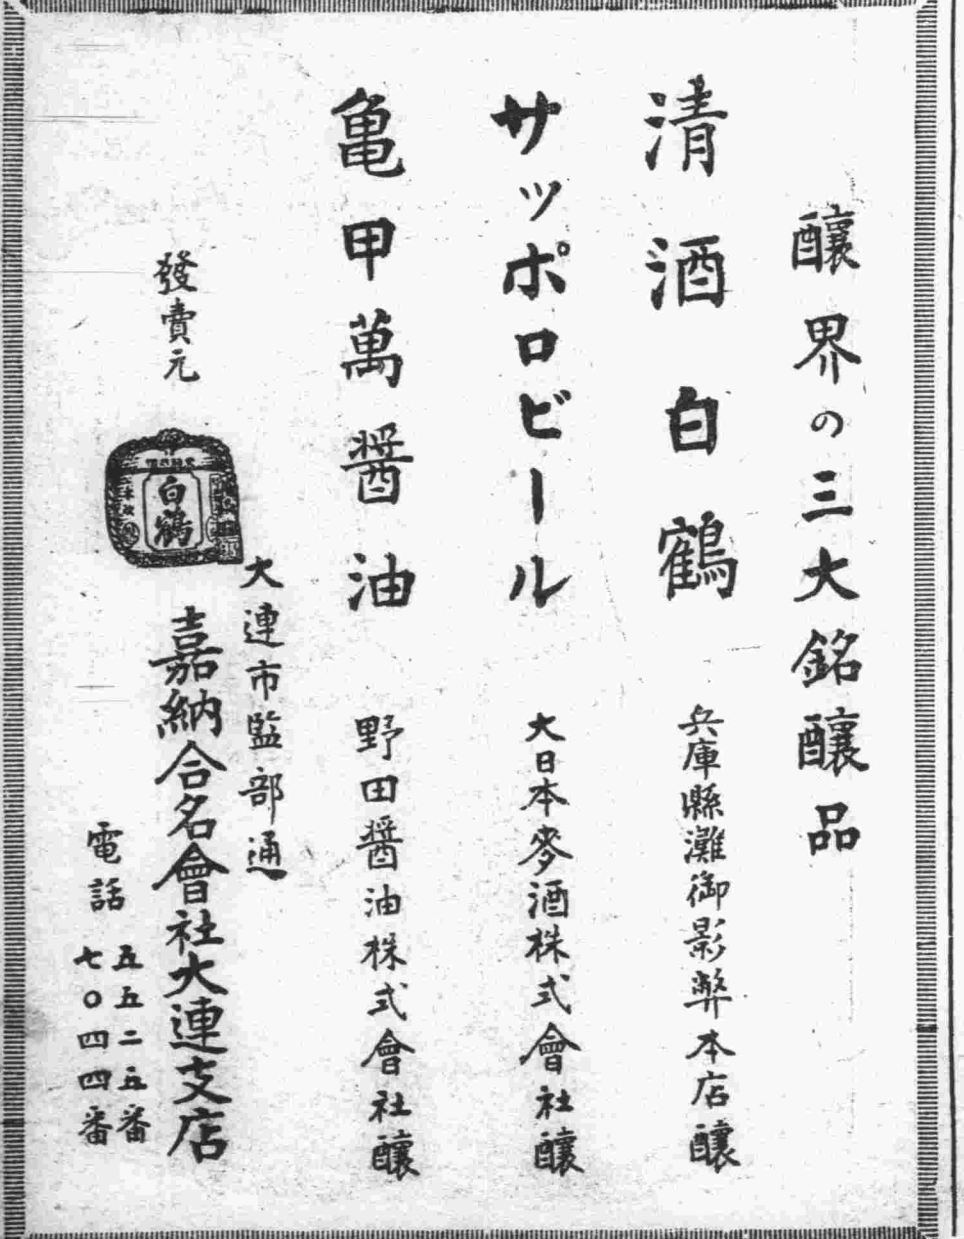 醸界の三大銘醸品
清酒白鶴
兵庫縣灘御影弊本店醸
サッポロビール
大日本麥酒株式會社醸
亀甲萬醤油
野田醤油株式會社醸
發賣元
白鶴
大連市監部通
嘉納合名會社大連支店
電話
五五二五番
七〇四四番